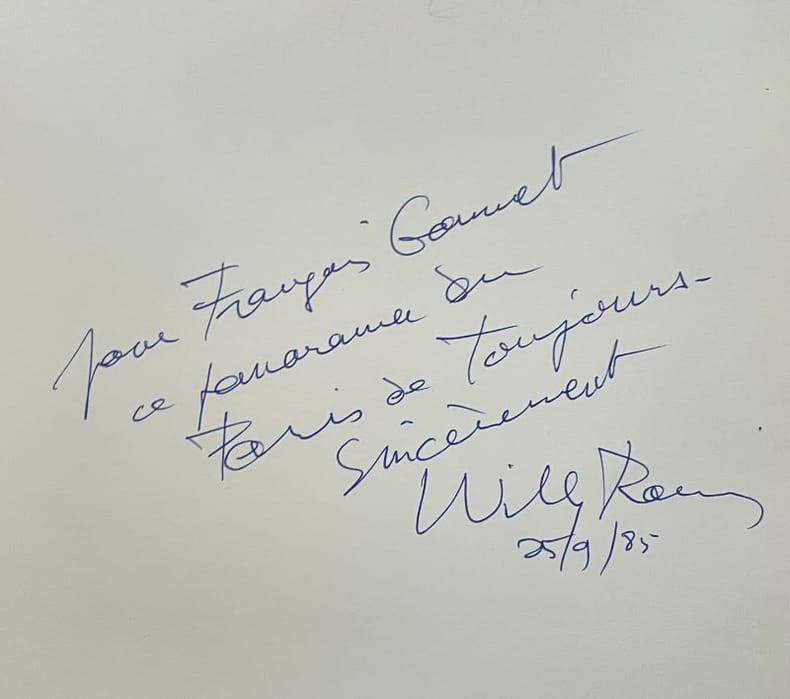 pour François Gonnet
ce panorama du
Paris de toujours-
Sincèrement
Willy Ronis
25/9/85